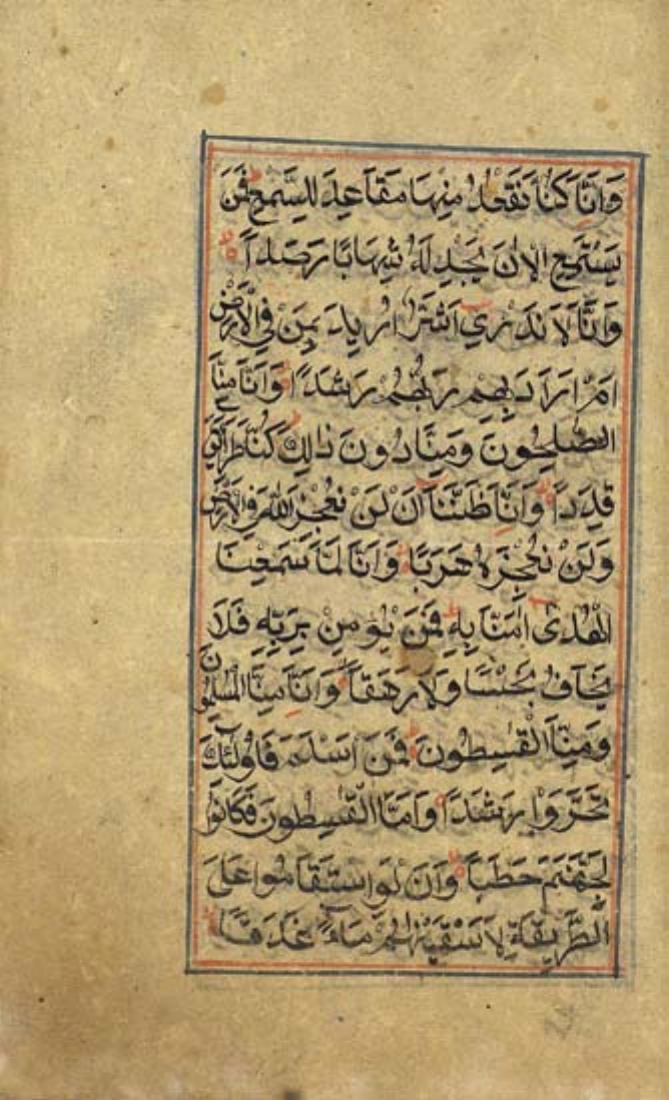 وَاَنَّا كُنَّا نَقْعُدُ مِنْهَا مَقَاعِدَ لِلسَّمْعِ فَمَنْ
يَسْتَمِعِ الْاٰنَ يَجِدْ لَهٗ شِهَابًا رَصَدًا
وَاَنَّا لَا نَدْرِيْ اَشَرٌّ اُرِيْدَ بِمَنْ فِي الْاَرْضِ
اَمْ اَرَادَ بِهِمْ رَبُّهُمْ رَشَدًا وَاَنَّا مِنَّا
الصّٰلِحُوْنَ وَمِنَّا دُوْنَ ذٰلِكَ كُنَّا طَرَآئِقَ
قِدَدًا وَاَنَّا ظَنَنَّآ اَنْ لَنْ نُعْجِزَ اللّٰهَ فِي الْاَرْضِ
وَلَنْ نُعْجِزَهٗ هَرَبًا وَاَنَّا لَمَّا سَمِعْنَا
الْهُدٰٓى اٰمَنَّا بِهٖ فَمَنْ يُؤْمِنْ بِرَبِّهٖ فَلَا
يَخَافُ بَخْسًا وَلَا رَهَقًا وَاَنَّا مِنَّا الْمُسْلِمُوْنَ
وَمِنَّا الْقٰسِطُوْنَ فَمَنْ اَسْلَمَ فَاُولٰٓئِكَ
تَحَرَّوْا رَشَدًا وَاَمَّا الْقٰسِطُوْنَ فَكَانُوْا
لِجَهَنَّمَ حَطَبًا وَاَنْ لَوِ اسْتَقَامُوْا عَلَى
الطَّرِيْقَةِ لَاَسْقَيْنٰهُمْ مَآءً غَدَقًا